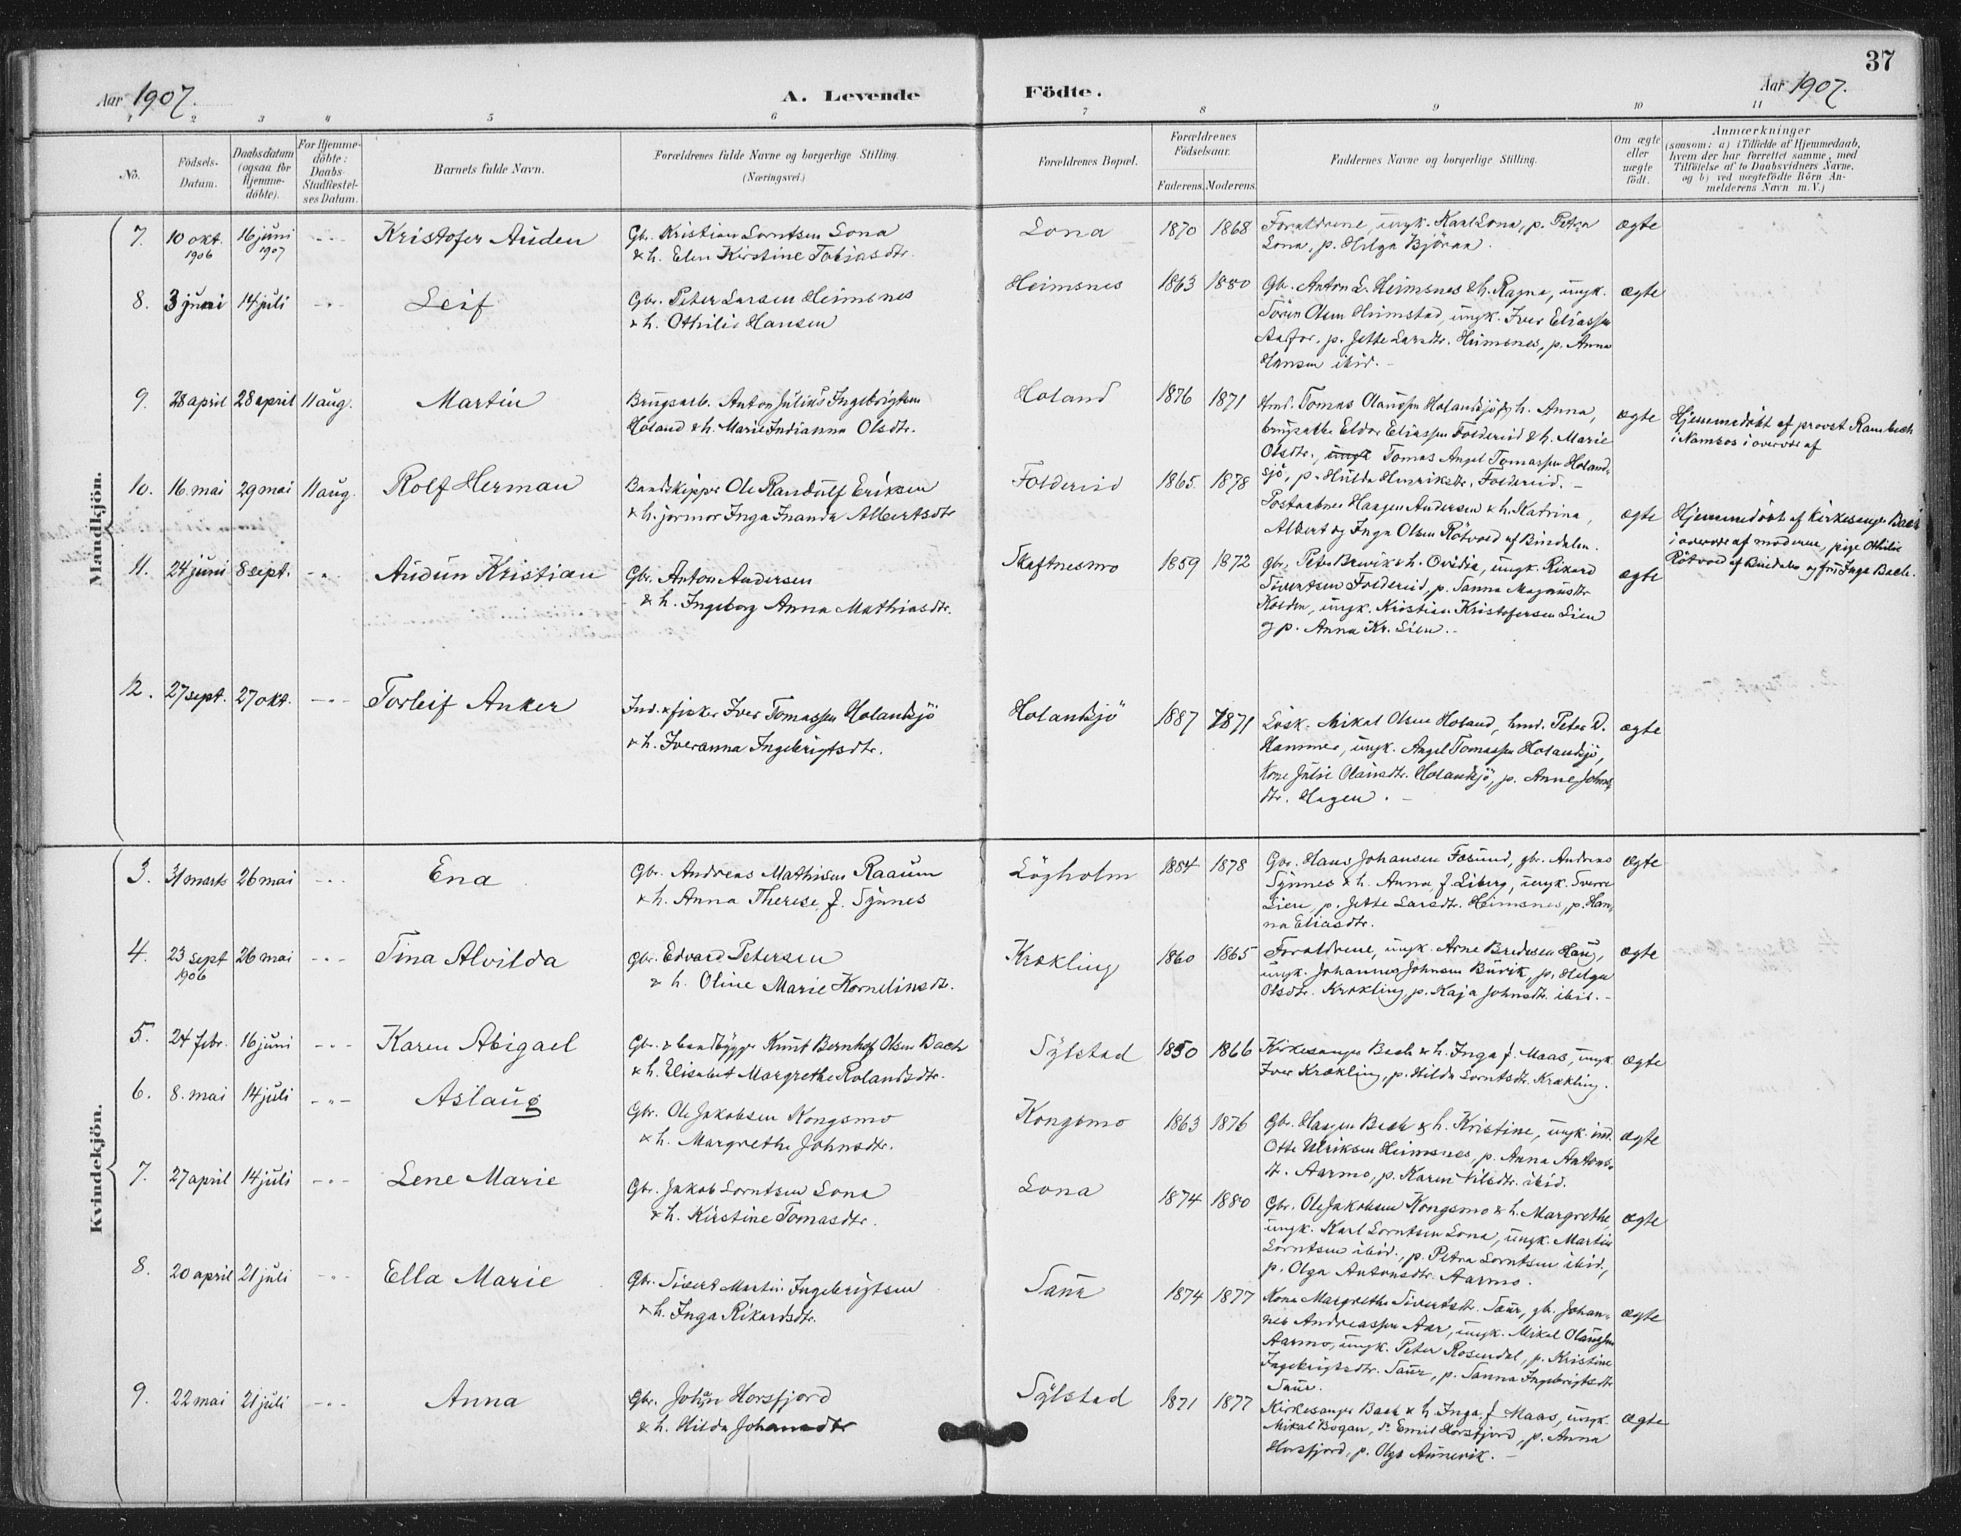 37
Aar 1907.
A. Levende Födte.
Aar 1907.
1 2 3 4 5 6 7 8 9 10 11
No.
Födsels-Datum.
Daabsdatum (ogsaa for Hjemme-döbte).
For Hjemme-döbte: Daabs-Stadfæstel-ses Datum.
Barnets fulde Navn.
Forældrenes fulde Navne og borgerlige Stilling.
(Næringsvei.)
Forældrenes Bopæl.
Forældrenes Födselsaar.
Faderens. Moderens.
Faddernes Navne og borgerlige Stilling.
Om ægte eller uægte födt.
Anmærkninger
(saasom: a) i Tilfælde af Hjemmedaab,
hvem der har forrettet samme, med
Tilföielse af to Daabsvidners Navne,
og b) ved uægtefödte Börn An-
melderens Navn m. V.)
Mandkjön.
7. 10 okt. 1906 16 juni 1907 -"- Kristofer Auden
Gbr. Kristian Lorntsen Lona
& h. Elen Kirstine Tobiasdtr.
Lona 1870 1868
Forældrene, ungk. Karl Lona, p. Petra
Lona, p. Helga Björaa.
ægte
8. 3 juni 14 juli -"- Leif
Gbr. Peter Larsen Heimsnes
& h. Othilie Hansen
Heimsnes 1863 1880
Gbr. Anton L. Heimsnes & h. Ragna, ungk.
Sören Olsen Heimstad, ungk. Iver Eliassen
Aafor, p. Jette Larsdtr. Heimsnes, p. Anna
Hansen ibid. -
ægte
9. 28 april 28 april 11 aug. Martin
Brugsarb. Anton Julius Ingebrigtsen
Höland & h. Marie Indianna Olsdtr.
Holand 1876 1871
Tomas Olaussen Holandsjö & h. Anna,
Eldor Eliassen Foldereid & h. Marie
Olsdtr., ungk Tomas Angel Tomassen Holand-
sjö, p. Hulda Henriksdtr. Foldereid. -
ægte
Hjemmedöbt af provst Rambech
i Namsos i overvær af
10. 16 mai 29 mai 11 aug. Rolf Herman
Ole Randulf Eriksen
& h. jormor Inga Inanda Albertsdtr
Foldereid 1865 1878
Postaabner Haagen Andersen & h. Katrina,
Albert og Inga Olsen Rötvold af Bindalen.
ægte
Hjemmedöbt af Kirkesanger Bach
i overvær af moderen, pige Othilie
Rötvold af Bindalen og fru Inga Bach.
11. 24 juni 8 sept. -"- Audun Kristian
Gbr. Anton Andersen
& h. Ingeborg Anna Mathiasdtr.
Skaftnesmo 1859 1872
gbr. Peter & h. Ovidia, ungk. Rikard
Sivertsen Foldereid, p. Sanna Magnusdtr
Kolden, ungk. Kristian Kristofersen Lien
og p. Anna Kr. Lien. -
ægte
12. 27 sept. 27 okt. -"- Torleif Anker
Ind. & fisker Iver Tomassen Holandsjö
& h. Iveranna Ingebrigtsdtr.
Holandsjö 1887 1871
Lösk. Mikal Olsen Holand, hmd. Peter D.
Hammer, ungk. Angel Tomassen Holandsjö,
Kone Julie Olausdtr. Holandsjö, p. Anne Johns-
dtr. Hagen. -
ægte
Kvindekjön.
3. 31 marts 26 mai -"- Ena
Gbr. Andreas Mathisen Raaum
& h. Anna Therese f. Synnes
Lögholm 1884 1878
Gbr. Hans Johansen Fosund, gbr. Andreas
Synnes & h. Anna f. Liberg, ungk. Sverre
Lien, p. Jette Larsdtr. Heimsnes, p. Han-
na Eliasdtr.
ægte
4. 23 sept 1906 26 mai -"- Tina Alvilda
gbr. Edvard Petersen
& h. Oline Marie Kornelinsdtr.
Krækling 1860 1865
Forældrene, ungk. Arne Bredesen Haug,
ungk. Johannes Johnsen Burik, p. Helga
Olsdtr. Krækling p. Kaja Johnsdtr. ibid. -
ægte
5. 24 febr. 16 juni -"- Karen Abigael
Gbr. & baadbygger Knut Bernhof Olsen Bach
& h. Elisabet Margrethe Rolandsdtr.
Sylstad 1850 1866
Kirkesanger Bach & h. Inga f. Maas, ungk.
Iver Krækling, p. Hilda Lorntsdtr. Krækling.
ægte
6. 8. mai 14 juli -"- Aslaug
Gbr. Ole Jakobsen Kongsmo
& h. Margrethe Johnsdtr.
Kongsmo 1863 1876
Gbr. Haagen Bach & h. Kristine, ungk. ind.
Otte Ulriksen Heimsnes, p. Anna Antons-
dt. Aarmo, p. Karen Nilsdtr. ibid.
ægte
7. 27 april 14 juli -"- Lene Marie
Gbr. Jakob Lorntsen Lona
& h. Kirstine Tomasdtr.
Lona 1874 1880
Gbr. Ole Jakobsen Kongsmo & h. Margrethe,
ungk. Karl Lorntsen Lona, ungk. Martin
Lorntsen ibid., p. Petra Lorntsen ibid.,
p. Olga Antonsdtr. Aarmo.
ægte
8. 20 april 21 juli -"- Ella Marie
Gbr. Sivert Martin Ingebrigtsen
& h. Inga Rikardsdtr.
Saur 1874 1877
Kone Margrethe Sivertsdtr. Saur, gbr. Johan-
nes Andreassen Aar, ungk. Mikal Olaussen
Aarmo, ungk. Peter Rosendal, p. Kristine
Ingebrigtsdtr. Saur, p. Sanna Ingebrigtsdtr
Saur.
ægte
9. 22 mai 21 juli -"- Anna
Gbr. Johan Horsfjord
& h. Hilda Johansdtr
Sylstad 1871 1877
Kirkesanger Bach & h. Inga f. Maas, ungk.
Mikal Bogan, do Emil Horsfjord, p. Anna
Horsfjord, p. Olga Aunevik. -
ægte